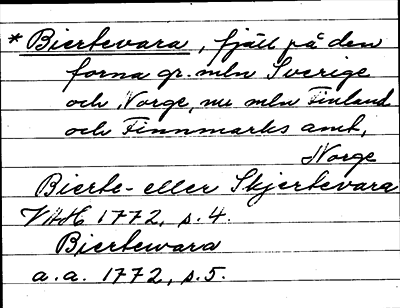 * Biertevara, fjäll på den
forna gr. mln Sverige
och Norge, nu mln Finland
och Finnmarks amt,
Norge
Bierte- eller Skjertevara
VAH 1772, s. 4.
Biertewara
a.a. 1772, s. 5.